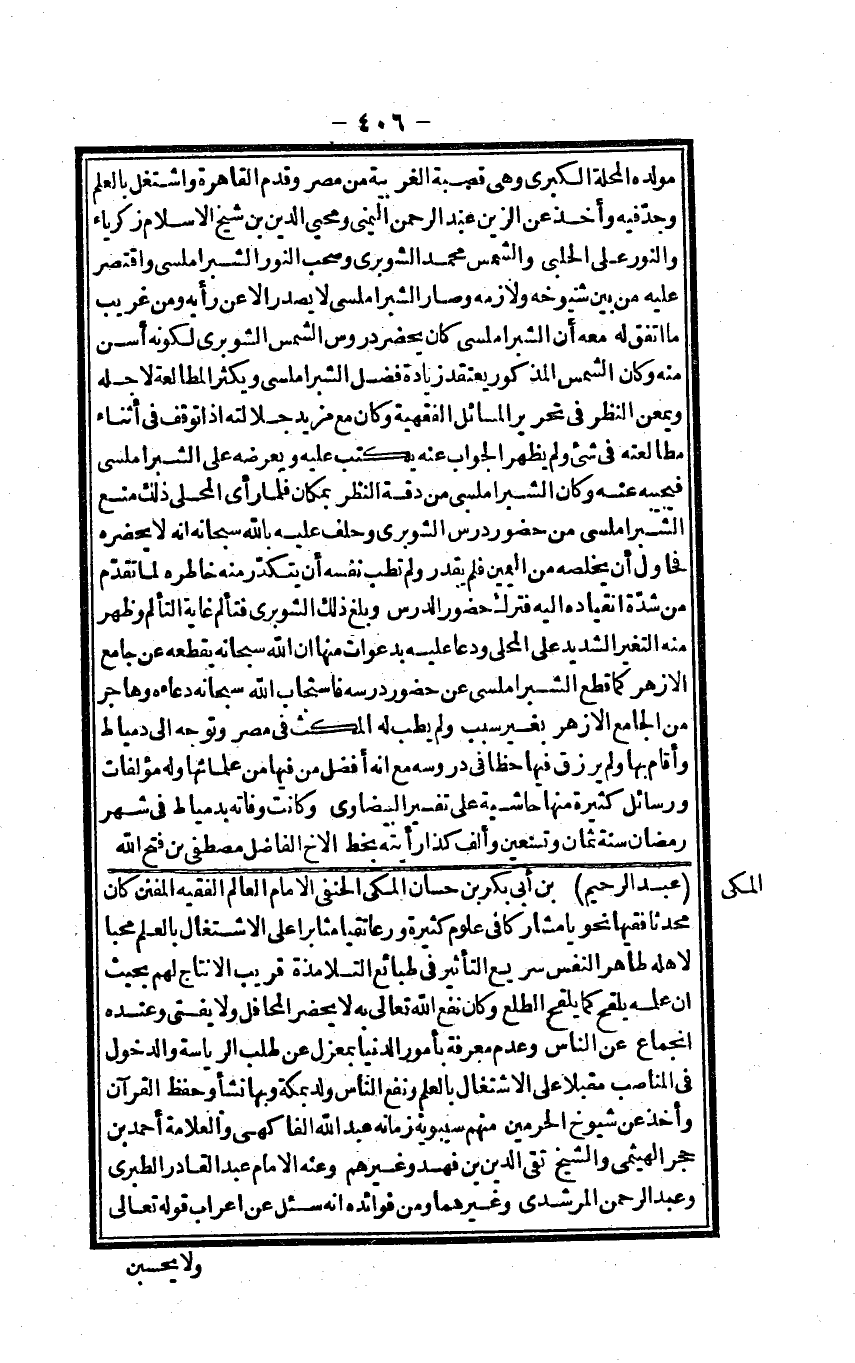 - ٤٠٦ -
مولده المحلة الكبرى وهى قصبة الغربية من مصر وقدم القاهرة واشتغل بالعلم
وجد فيه وأخذ عن الزين عبد الرحمن اليمنى ومحيى الدين بن شيخ الاسلام زكرياء
والنور على الحلبى والشمس محمد الشوبرى وصحب النور الشبراملسى واقتصر
عليه من بين شيوخه ولازمه وصار الشبراملسى لا يصدر الا عن رأيه ومن غريب
ما اتفق له معه أن الشبراملسى كان يحضر دروس الشمس الشوبرى لكونه أسن
منه وكان الشمس المذكور يعتقد زيادة فضل الشبراملسى ويكثر المطالعة لاجله
ويمعن النظر فى تحرير المسائل الفقهية وكان مع مزيد جلالته اذا توقف فى أثناء
مطالعته فى شئ ولم يظهر الجواب عنه يكتب عليه ويعرضه على الشبراملسى
فيجيبه عنه وكان الشبراملسى من دقة النظر بمكان فلما رأى المحلى ذلك منع
الشبراملسى من حضور درس الشوبرى وحلف عليه بالله سبحانه انه لا يحضره
فحاول أن يخلصه من اليمين فلم يقدر ولم تطب نفسه أن يتكدر منه خاطره لما تقدّم
من شدّة انقياده اليه فترك حضور الدرس وبلغ ذلك الشوبرى فتألم غاية التألم وظهر
منه التغير الشديد على المحلى ودعا عليه بدعوات منها ان الله سبحانه يقطعه عن جامع
الازهر كما قطع الشبراملسى عن حضور درسه فاستجاب الله سبحانه دعاءه وهاجر
من الجامع الازهر بغير سبب ولم يطب له المكث فى مصر وتوجه الى دمياط
وأقام بها ولم يرزق فيها حظا فى دروسه مع انه أفضل من فيها من علمائها وله مؤلفات
ورسائل كثيرة منها حاشية على تفسير البيضاوى وكانت وفاته بدمياط فى شهر
رمضان سنة ثمان وتسعين وألف كذا رأيته بخط الاخ الفاضل مصطفى بن فتح الله
المكى
(عبد الرحيم) بن أبى بكر بن حسان المكى الحنفى الامام العالم الفقيه المفنن كان
محدثا فقيها نحويا مشاركا فى علوم كثيرة ورعا تقيا مثابرا على الاشتغال بالعلم محبا
لاهله طاهر النفس سريع التأثير فى طبائع التلامذة قريب الانتاج لهم بحيث
ان علمه يلقح كما يلقح الطلع وكان نفع الله تعالى به لا يحضر المحافل ولا يفتى وعنده
انجماع عن الناس وعدم معرفة بأمور الدنيا بمعزل عن طلب الرياسة والدخول
فى المناصب مقبلا على الاشتغال بالعلم ونفع الناس ولد بمكة وبها نشأ وحفظ القرآن
وأخذ عن شيوخ الحرمين منهم سيبويه زمانه عبد الله الفاكهى والعلامة أحمد بن
حجر الهيثمى والشيخ تقى الدين بن فهد وغيرهم وعنه الامام عبد القادر الطبرى
وعبد الرحمن المرشدى وغيرهما ومن فوائده انه سئل عن اعراب قوله تعالى
ولا يحسبن